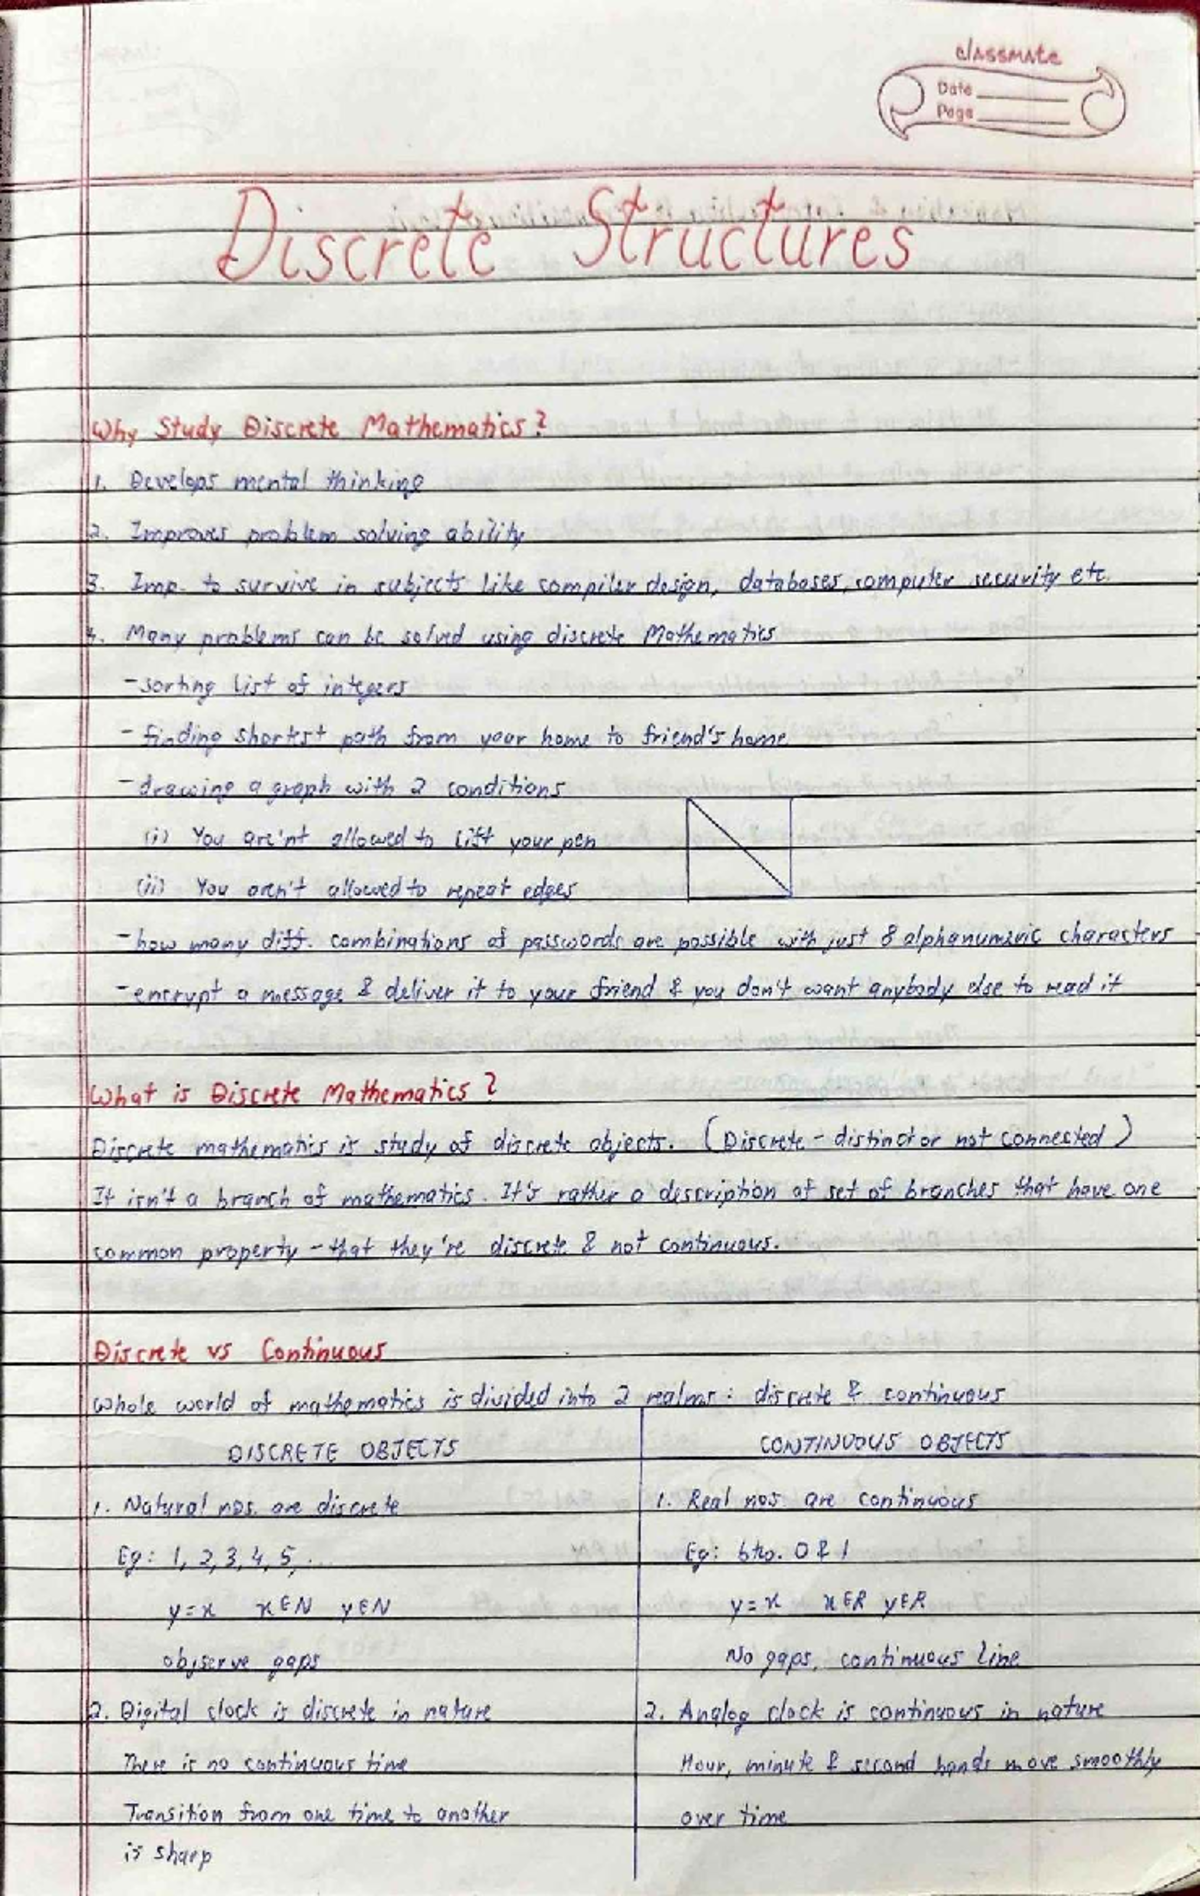 classmate
Date
Page
Discrete Structures
Why Study Discrete Mathematics?
1. Develops mental thinking
2. Improves problem solving ability
3. Imp. to survive in subjects like compiler design, databases, computer security etc.
4. Many problems can be solved using discrete Mathematics
- sorting list of integers
- finding shortest path from your home to friend's home
- drawing a graph with 2 conditions
(i) You are'nt allowed to lift your pen
(ii) You aren't allowed to repeat edges
- how many diff. combinations of passwords are possible with just 8 alphanumeric characters
- encrypt a message & deliver it to your friend & you don't want anybody else to read it
What is Discrete Mathematics?
Discrete mathematics is study of discrete objects. (Discrete - distinct or not connected)
It isn't a branch of mathematics. It's rather a description of set of branches that have one
common property - that they're discrete & not continuous.
Discrete vs Continuous
Whole world of mathematics is divided into 2 realms: discrete & continuous
DISCRETE OBJECTS
1. Natural nos. are discrete
Eg: 1, 2, 3, 4, 5, ...
y=x x∈N y∈N
observe gaps
2. Digital clock is discrete in nature
There is no continuous time
Transition from one time to another
is sharp
CONTINUOUS OBJECTS
1. Real nos are continuous
Eg: btn. 0 & 1
y=x x∈R y∈R
No gaps, continuous line
2. Analog clock is continuous in nature
Hour, minute & second hands move smoothly
over time